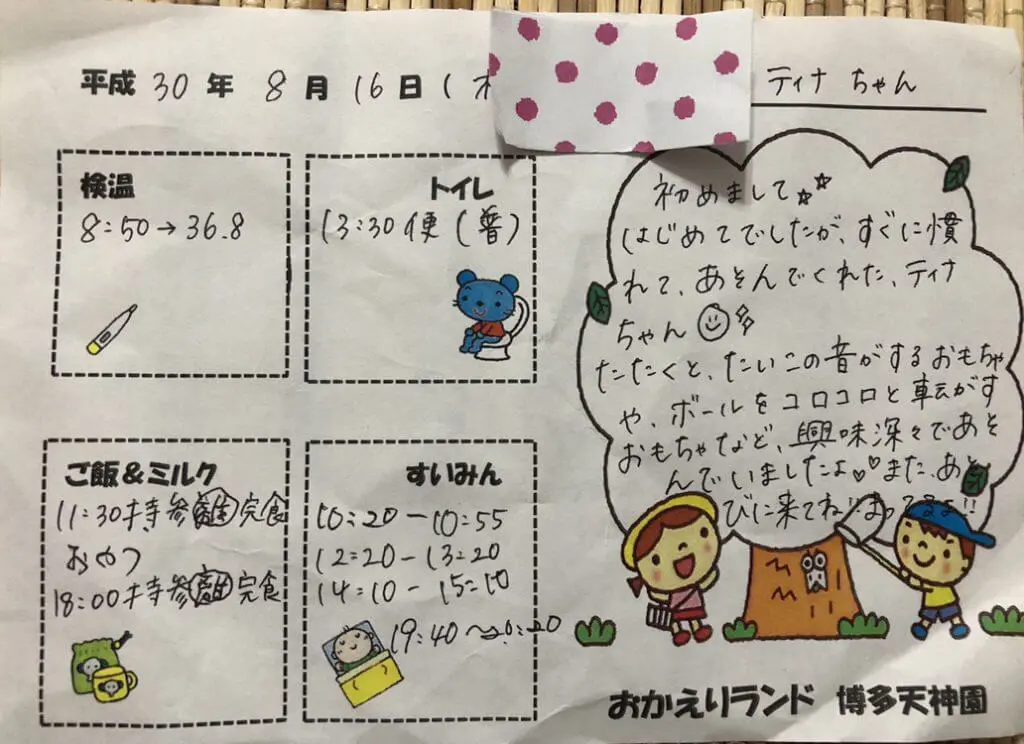 平成 30 年 8 月 16 日 (木
ティナ ちゃん
検温
8:50→36.8
トイレ
13:30 便(普)
ご飯&ミルク
11:30 持参離 完食
おやつ
18:00 持参離 完食
すいみん
10:20-10:55
12:20-13:20
14:10-15:10
19:40~20:20
初めまして☆☆
はじめてでしたが、すぐに慣
れて、あそんでくれた、ティナ
ちゃん
たたくと、たいこの音がするおもちゃ
や、ボールをコロコロと転がす
おもちゃなど、興味深々であそ
んでいましたよ♡♡また、あそ
びに来てね!!まってるよ!!
おかえりランド 博多天神園